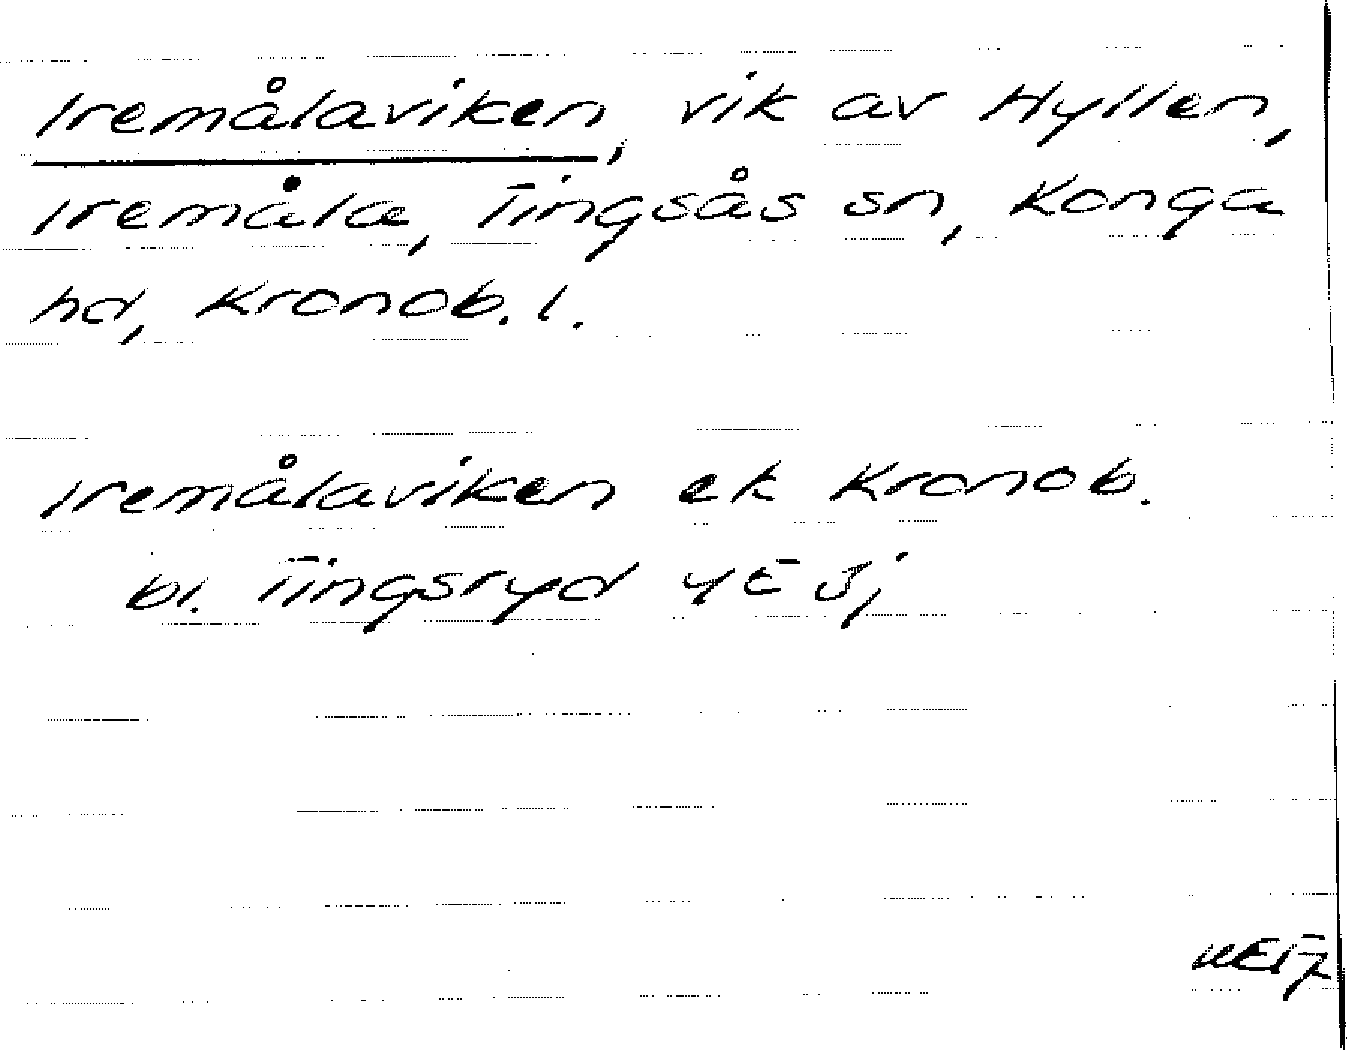 Iremålaviken, vik av Hyllen,
Iremåla, Tingsås sn, Konga
hd, Kronob. l.
Iremålaviken ek Kronob.
bl. Tingsryd 4E Sj